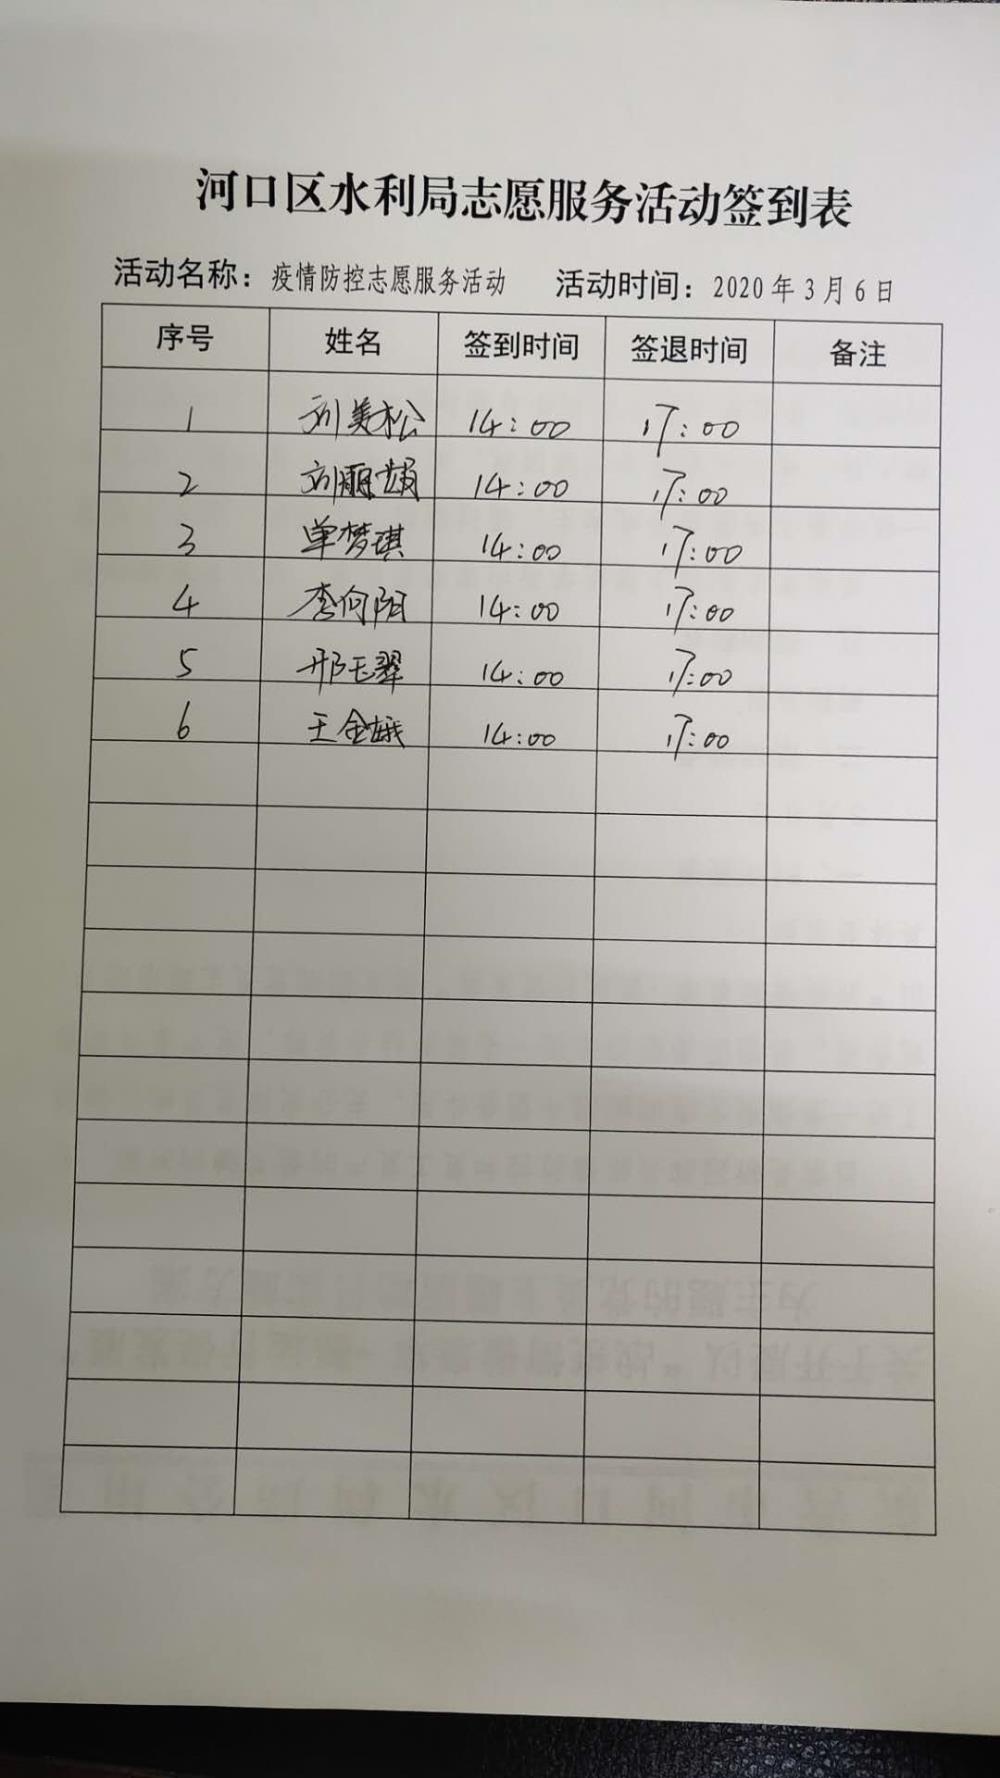 河口区水利局志愿服务活动签到表
活动名称：疫情防控志愿服务活动 活动时间：2020年3月6日
序号 姓名 签到时间 签退时间 备注
1 刘美松 14:00 17:00
2 刘丽娟 14:00 17:00
3 单梦琪 14:00 17:00
4 李向阳 14:00 17:00
5 邢玉翠 14:00 17:00
6 王金娥 14:00 17:00